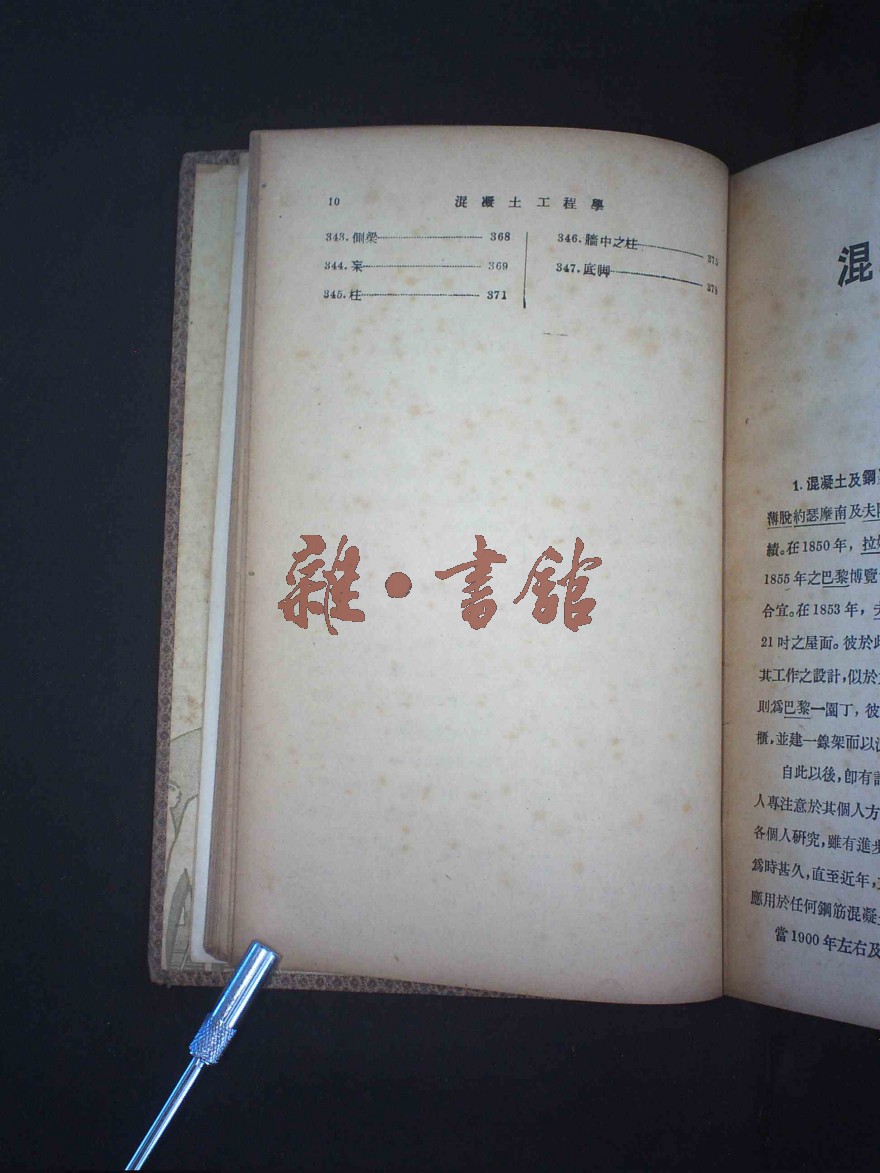 10 混凝土工程學
343. 側梁 368
344. 窠 369
345. 柱 371
346. 牆中之柱 375
347. 底脚 378
雜·書館
混
1. 混凝土及鋼
薄脫約瑟摩南及夫
績。在1850年,拉
1855年之巴黎博覽
合宜。在1853年,
21吋之屋面。彼於
其工作之設計,似於
則爲巴黎一園丁,彼
櫃,並建一鎳架而以
自此以後,卽有
人專注意於其個人方
各個人研究,雖有進步
爲時甚久,直至近年,
應用於任何鋼筋混凝
當1900年左右及